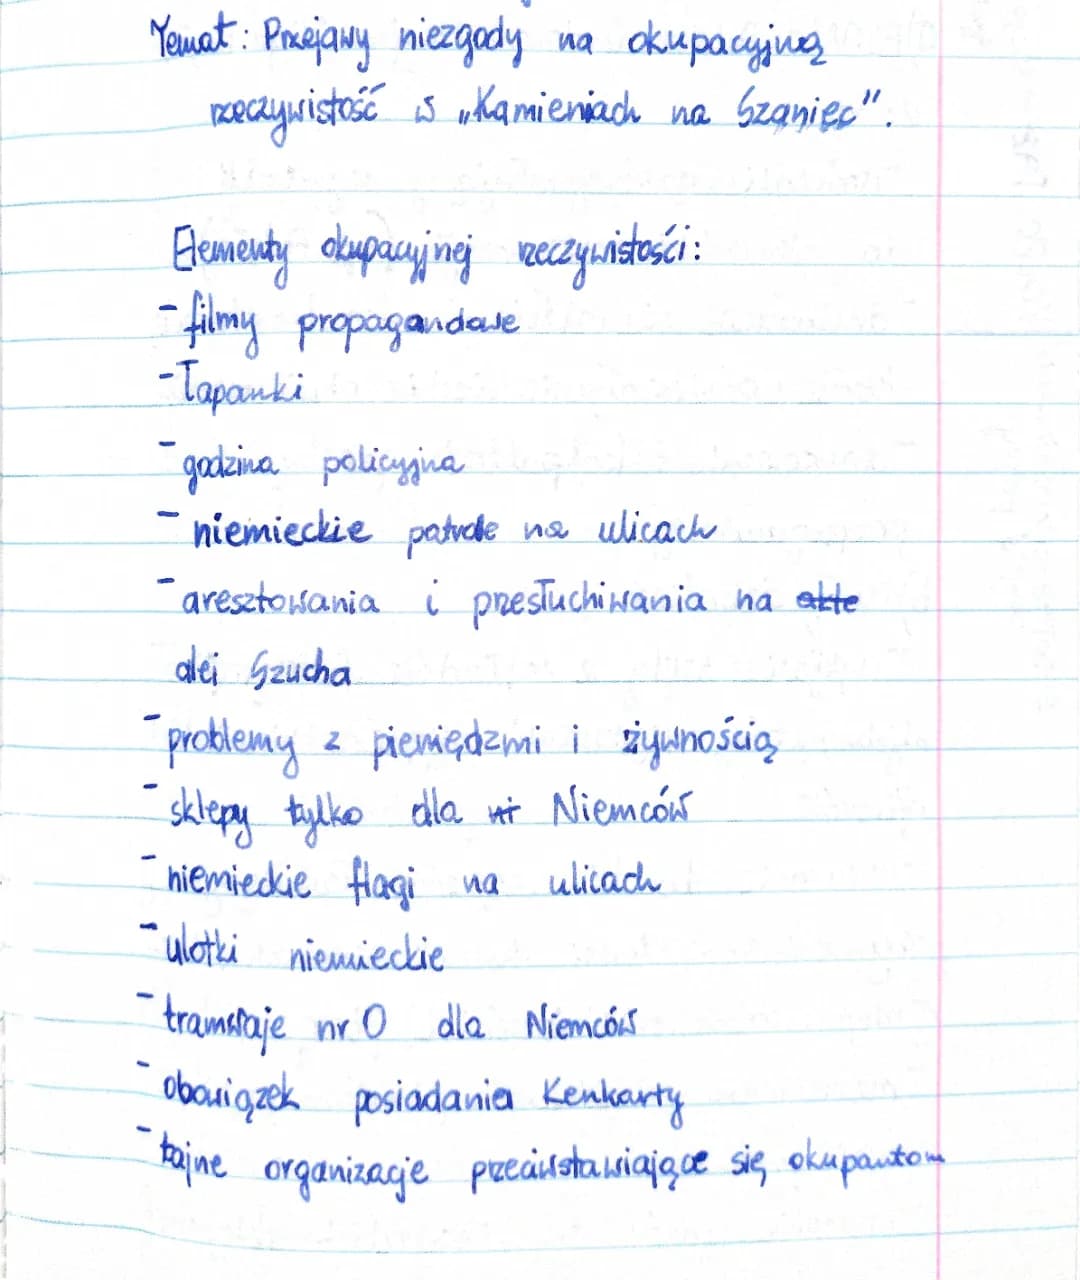 Temat: Przejawy niezgody na okupacyjną
rzeczywistość w „Kamieniach na Szaniec".
Elementy okupacyjnej rzeczywistości:
- filmy propagandowe
- Łapanki
- godzina policyjna
- niemieckie patrole na ulicach
- aresztowania i przesłuchiwania na
alei Szucha
- problemy z pieniędzmi i żywnością
- sklepy tylko dla Niemców
- niemieckie flagi na ulicach
- ulotki niemieckie
- tramwaje nr 0 dla Niemców
- obowiązek posiadania Kenkarty
- tajne organizacje przeciwstawiające się okupantom